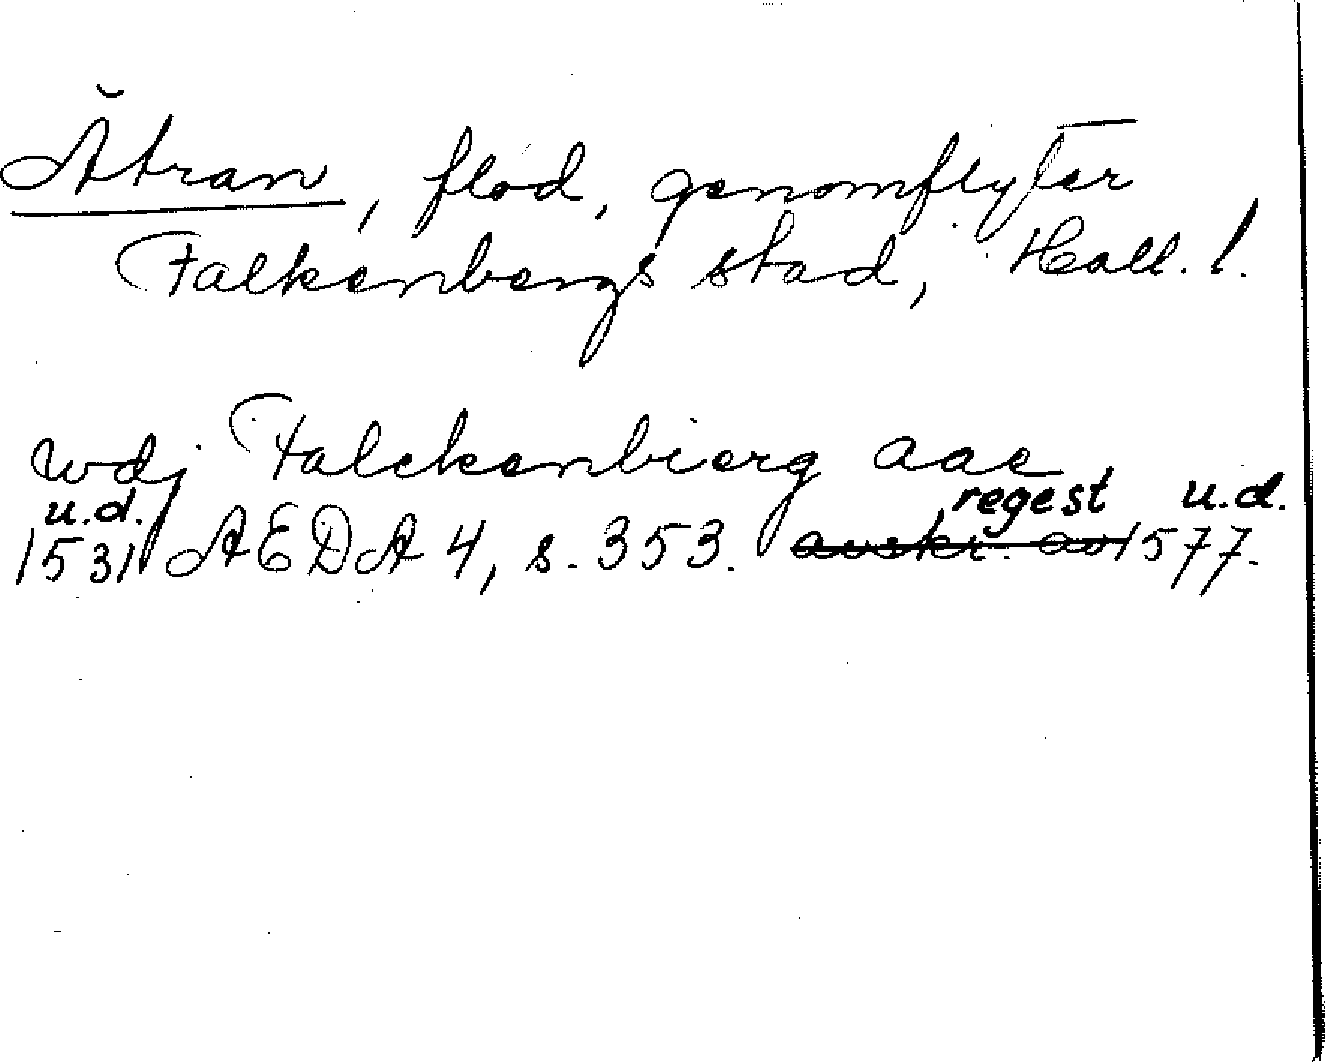 Ătran, flod, genomflyter
Falkenbergs stad, Hall. l.
wdj Falckenbierg aae
u.d. regest u.d.
1531 AEDA 4, s. 353. avskr. av 1577.